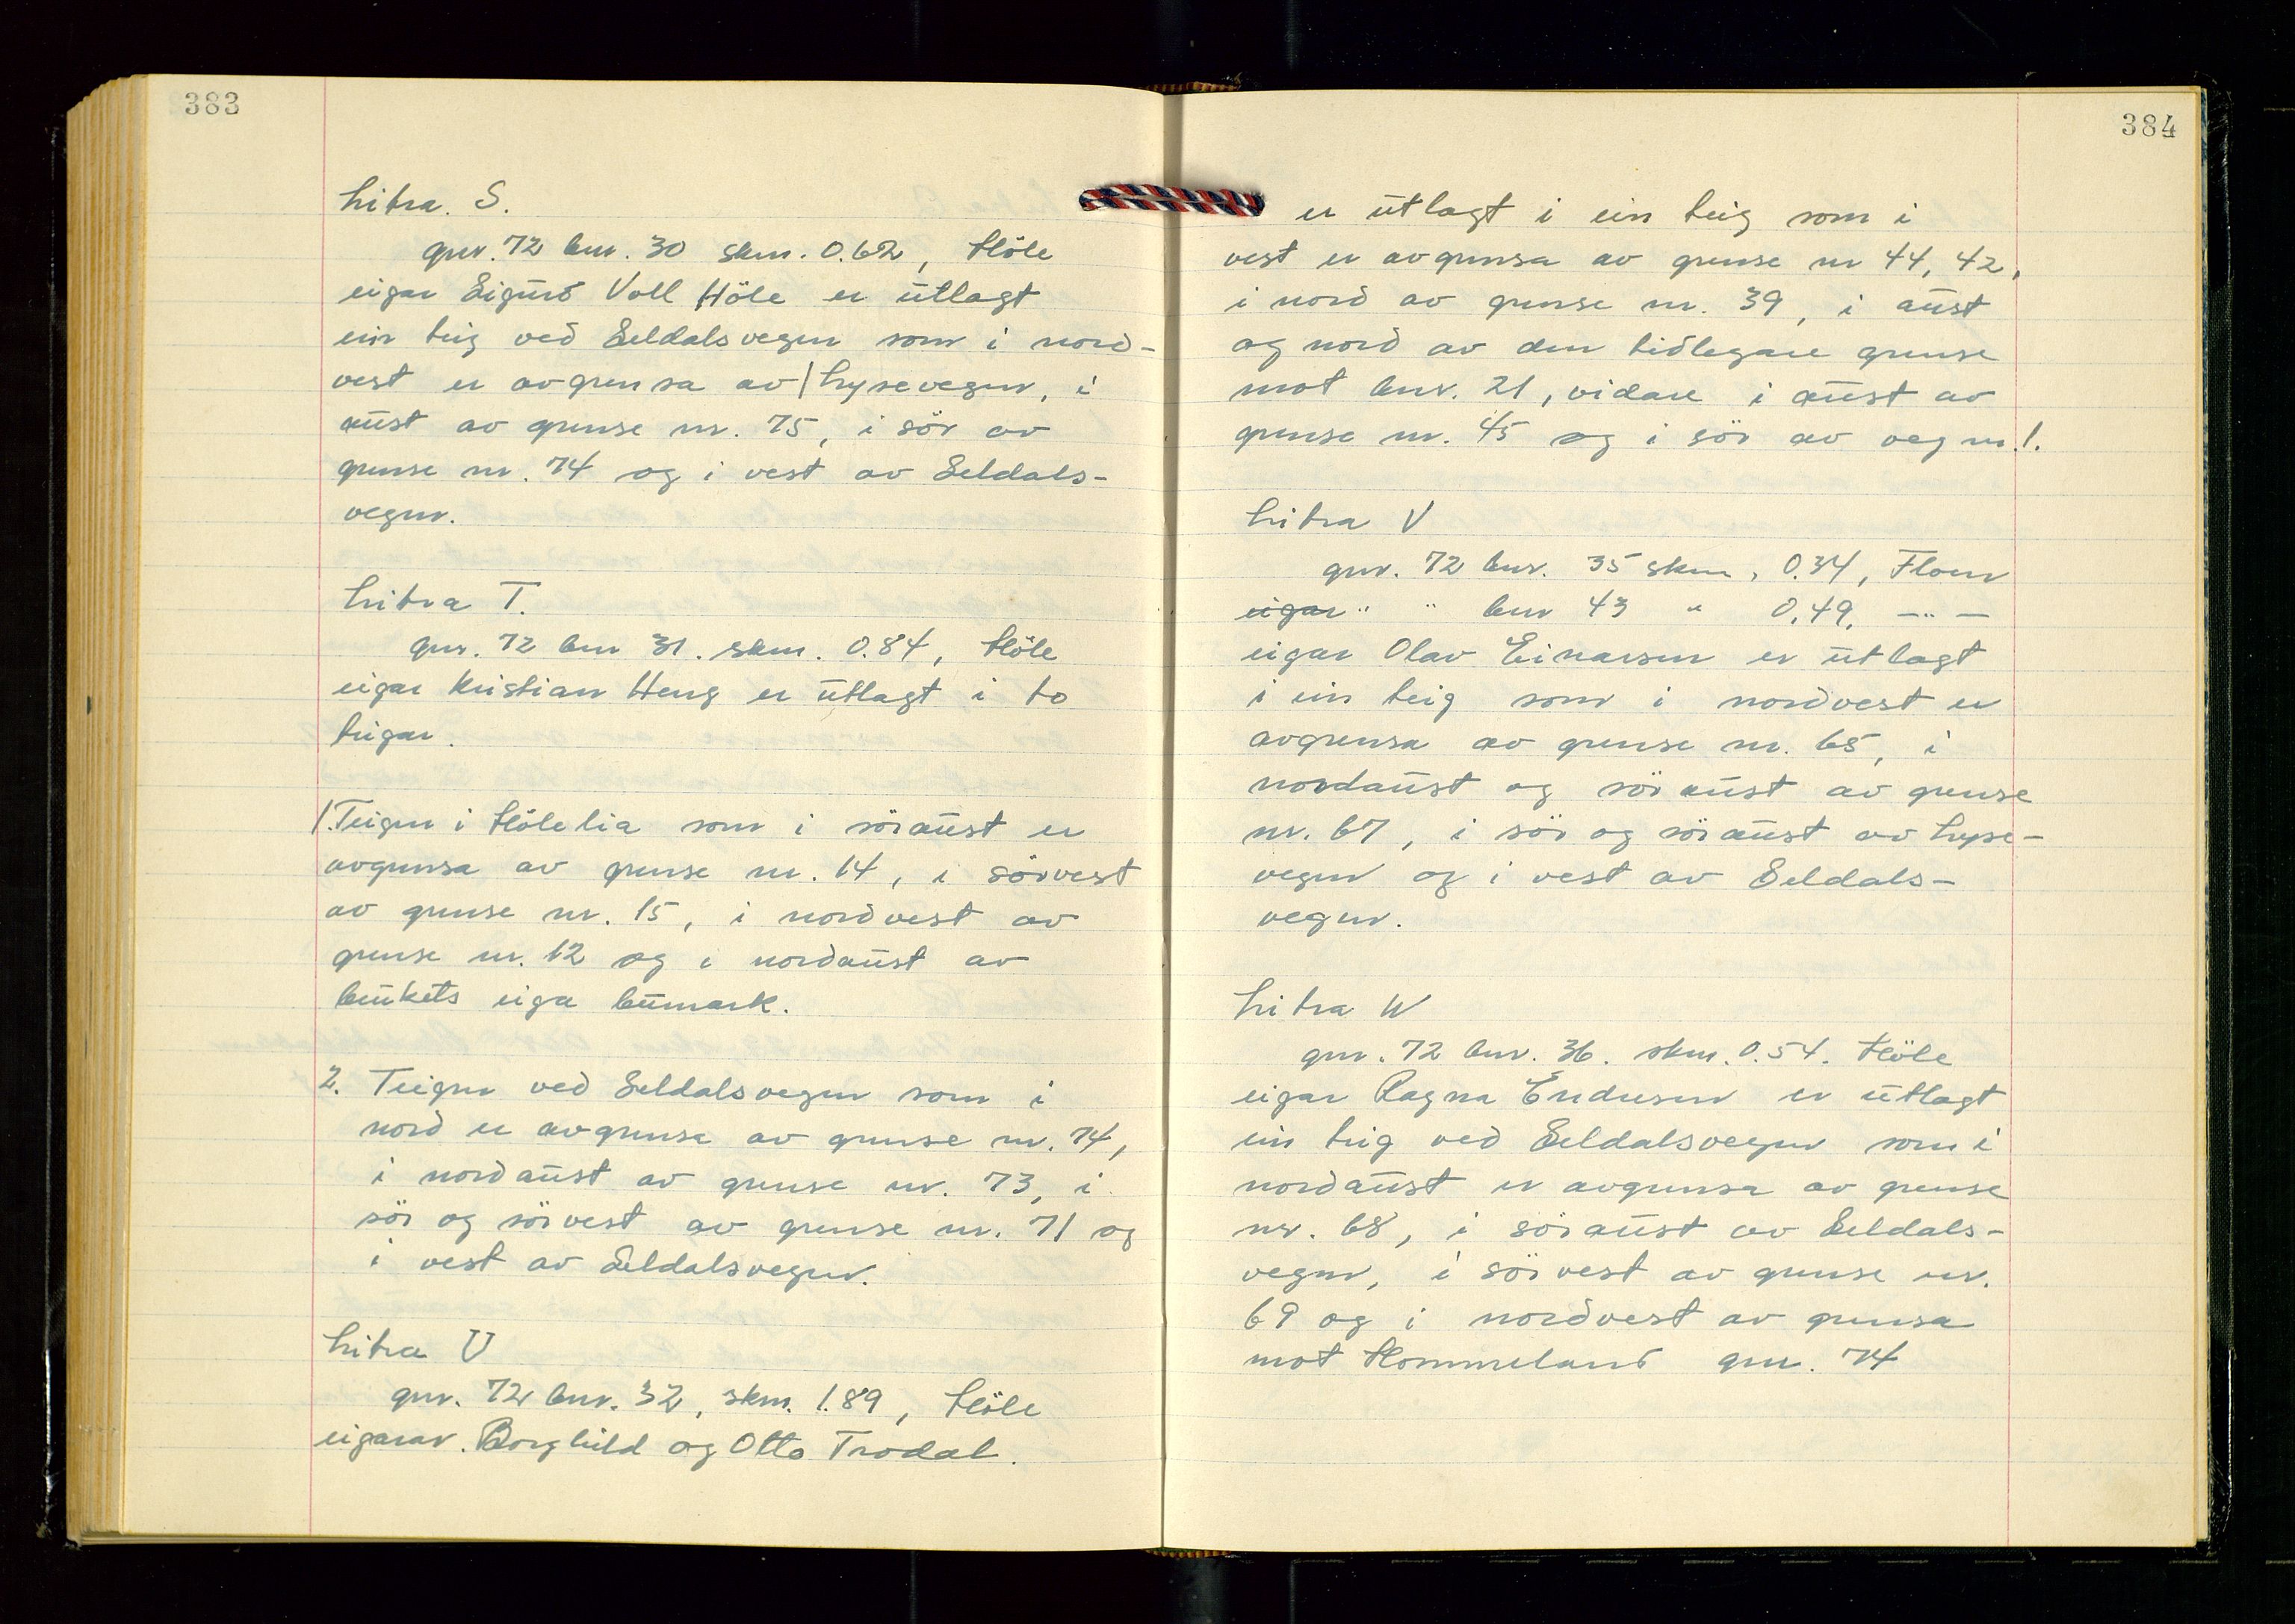 383
Litra. S.
gnr. 72 bnr. 30 skm. 0.62, Höle
eigar Sigurd Voll Höle er utlagt
ein teig ved Seldalsvegen som i nord-
vest er avgrensa av Lysevegen, i
aust av grense nr. 75, i sör av
grense nr. 74 og i vest av Seldals-
vegen.
Litra T.
gnr. 72 bnr 31. skm. 0.84, Höle
eigar Kristian Heng er utlagt i to
teigar.
1. Teigen i Hölelia som i söraust er
avgrensa av grense nr. 14, i sörvest
av grense nr. 15, i nordvest av
grense nr. 12 og i nordaust av
brukets eiga bumark.
2. Teigen ved Seldalsvegen som i
nord er avgrensa av grense nr. 74,
i nordaust av grense nr. 73, i
sör og sörvest av grense nr. 71 og
i vest av Seldalsvegen.
Litra U
gnr. 72 bnr. 32, skm. 1.89, Höle
eigarar. Borghild og Otto Trodal.
384
er utlagt i ein teig som i
vest er avgrensa av grense nr 44, 42,
i nord av grense nr. 39, i aust
og nord av den tidlegare grense
mot bnr. 21, vidare i aust av
grense nr. 45 og i sör av veg nr. 1.
Litra V
gnr. 72 bnr. 35 skm, 0.34, Floen
eigar " " bnr 43 " 0,49, —"—
eigar Olav Einarsen er utlagt
i ein teig som i nordvest er
avgrensa av grense nr. 65, i
nordaust og söraust av grense
nr. 67, i sör og söraust av Lyse-
vegen og i vest av Seldals-
vegen.
Litra W
gnr. 72 bnr. 36. skm. 0.54. Höle
eigar Ragna Endresen er utlagt
ein teig ved Seldalsvegen som i
nordaust er avgrensa av grense
nr. 68, i söraust av Seldals-
vegen, i sörvest av grense nr.
69 og i nordvest av grensa
mot Hommeland gnr. 74